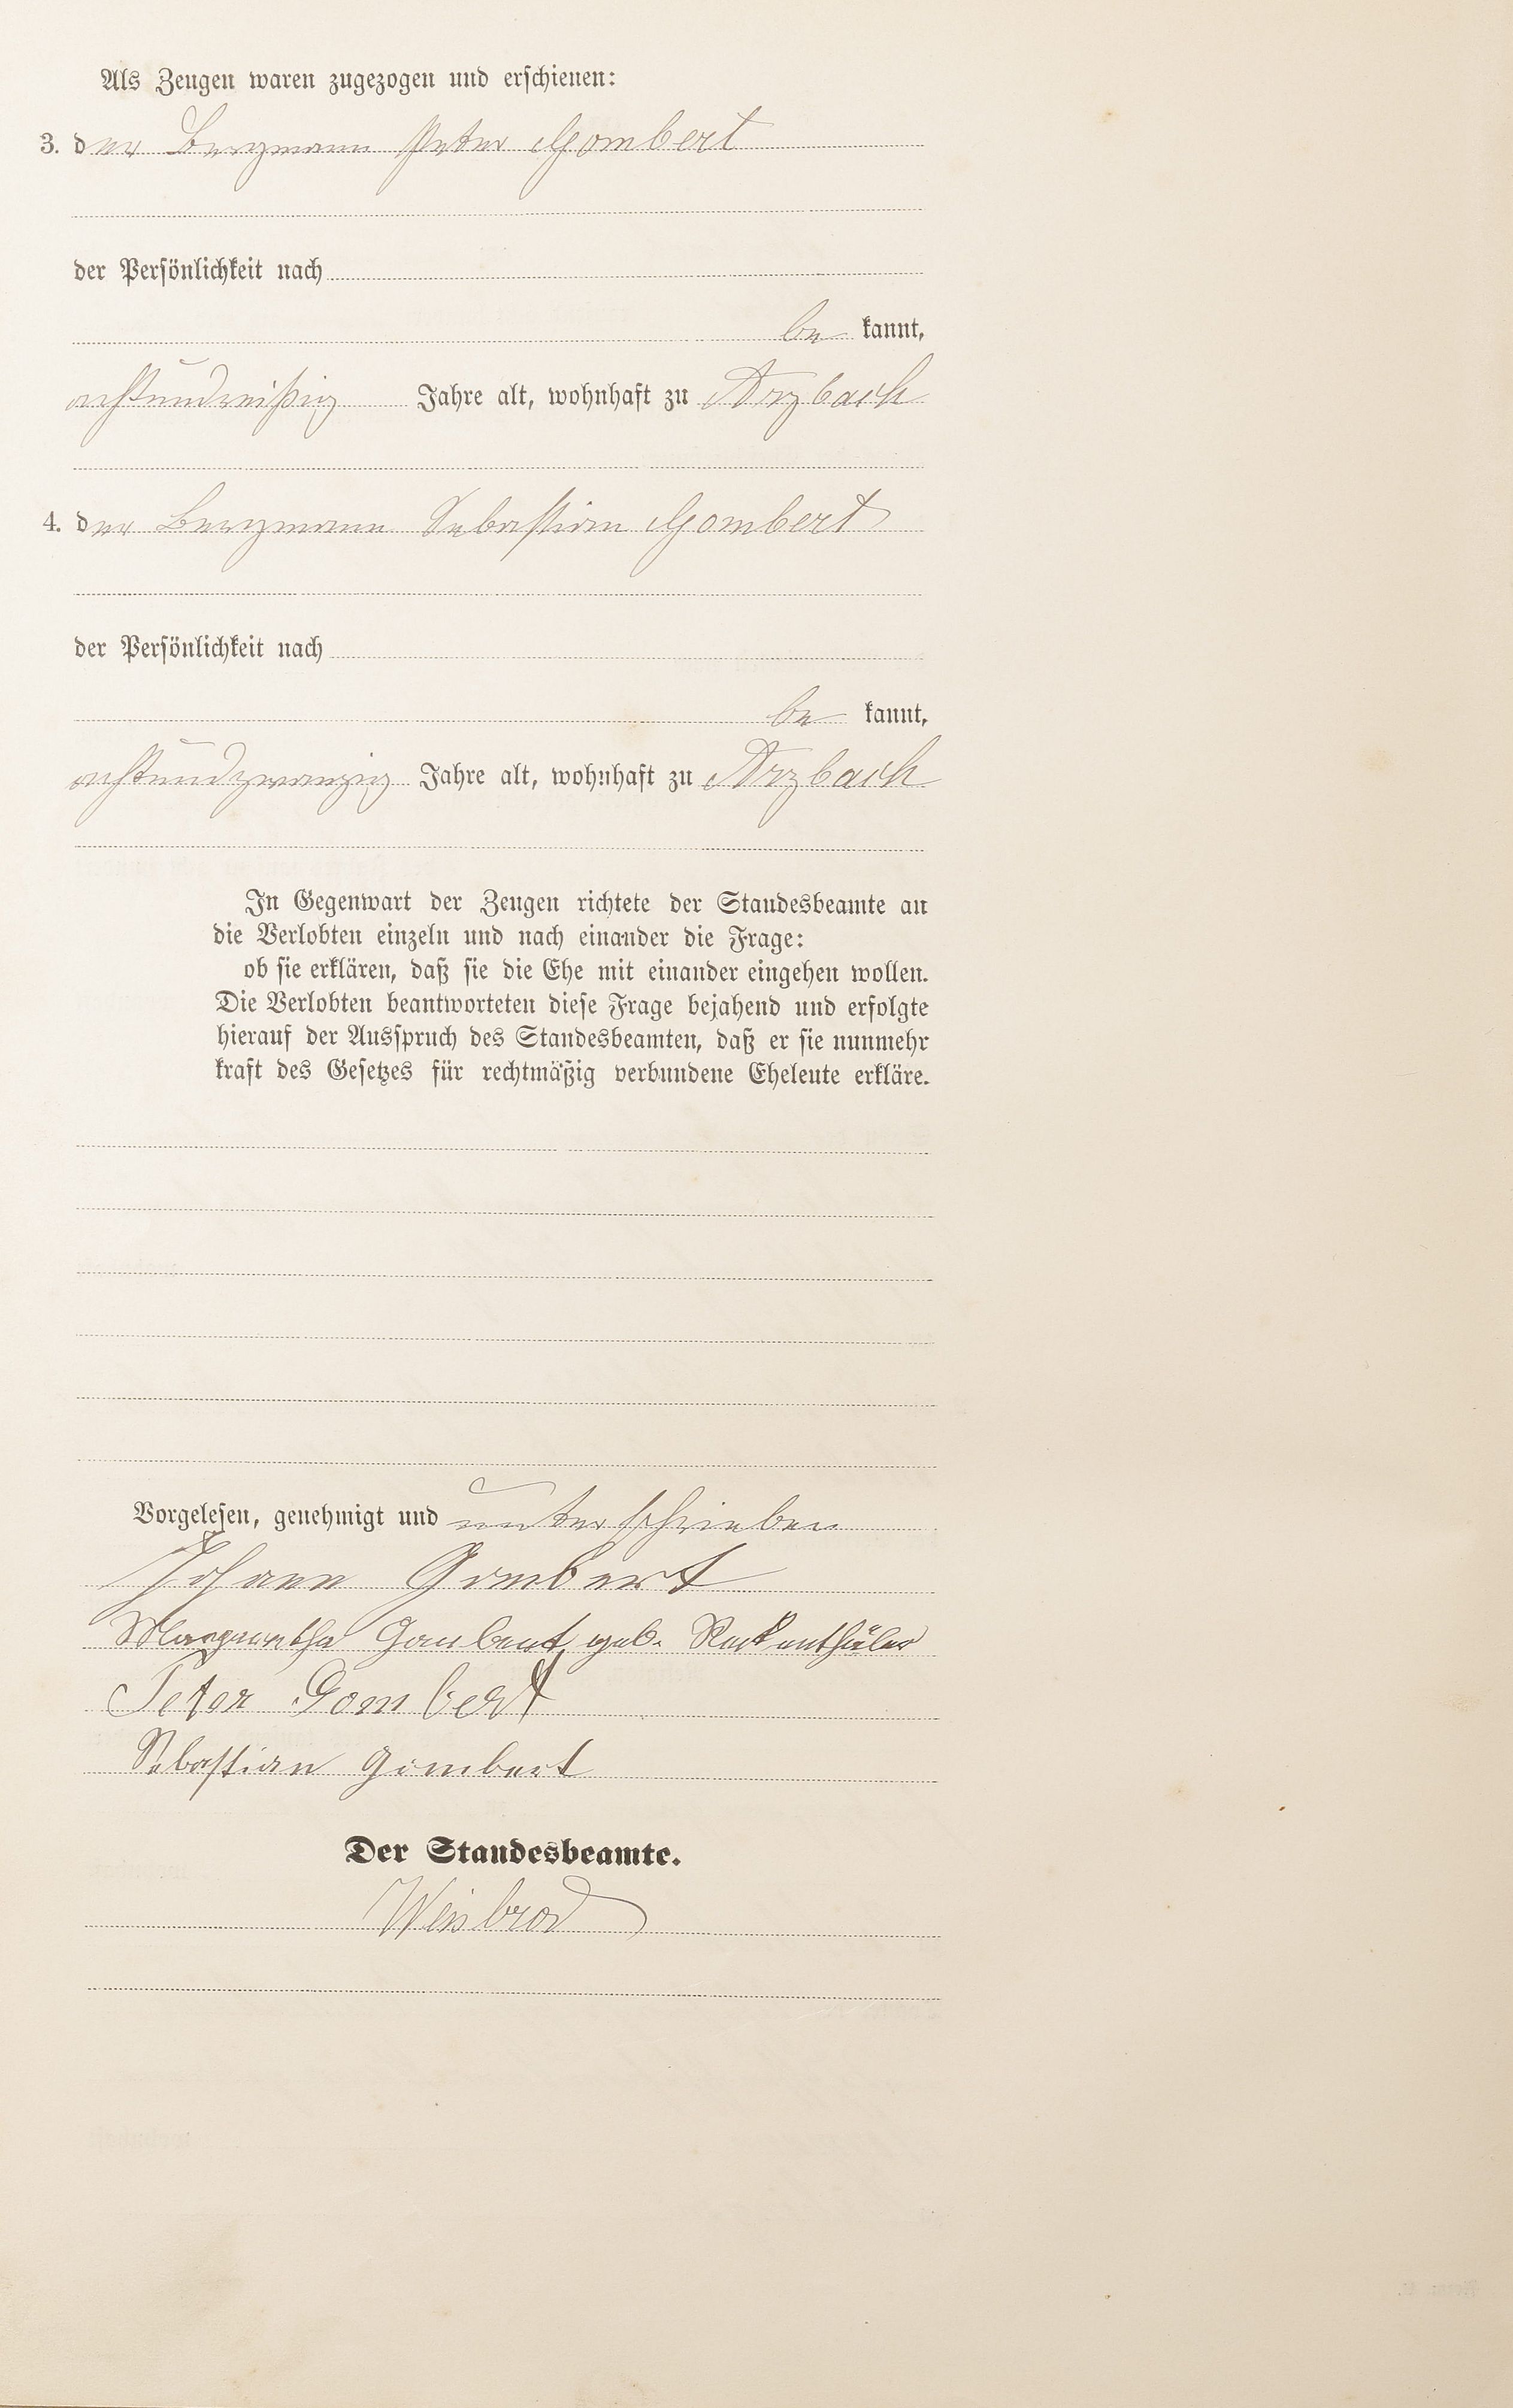 Als Zeugen waren zugezogen und erschienen:
3. der Bergmann Peter Gombert
der Persönlichkeit nach
be kannt,
achtunddreißig Jahre alt, wohnhaft zu Arzbach
4. der Bergmann Sebastian Gombert
der Persönlichkeit nach
be kannt,
achtundzwanzig Jahre alt, wohnhaft zu Arzbach
In Gegenwart der Zeugen richtete der Standesbeamte an
die Verlobten einzeln und nach einander die Frage:
ob sie erklären, daß sie die Ehe mit einander eingehen wollen.
Die Verlobten beantworteten diese Frage bejahend und erfolgte
hierauf der Ausspruch des Standesbeamten, daß er sie nunmehr
kraft des Gesetzes für rechtmäßig verbundene Eheleute erkläre.
Vorgelesen, genehmigt und unterschrieben
Johann Gombert
Margaretha Gombert geb.
Peter Gombert
Sebastian Gombert
Der Standesbeamte.
Weisbrod